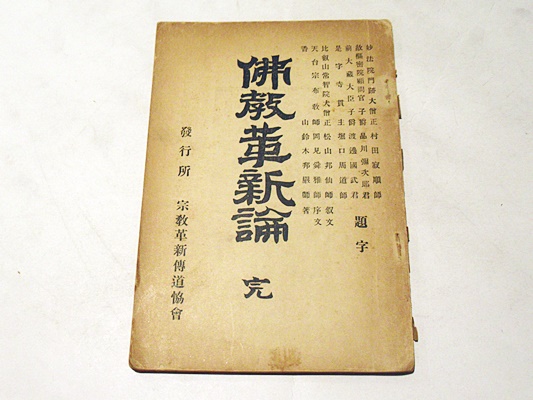 妙法院門跡大僧正村田寂順師
故樞密院顧問官子爵品川彌次郎君
前大藏大臣子爵渡邊國武君
是字寺貫主堀口周道師
題字
比叡山常智院大僧正松山邦仙師叙文
天台宗布教師岡見舜雅師序文
杳山鈴木邦嚴關著
佛教革新論 完
發行所 宗教革新傳道恊會